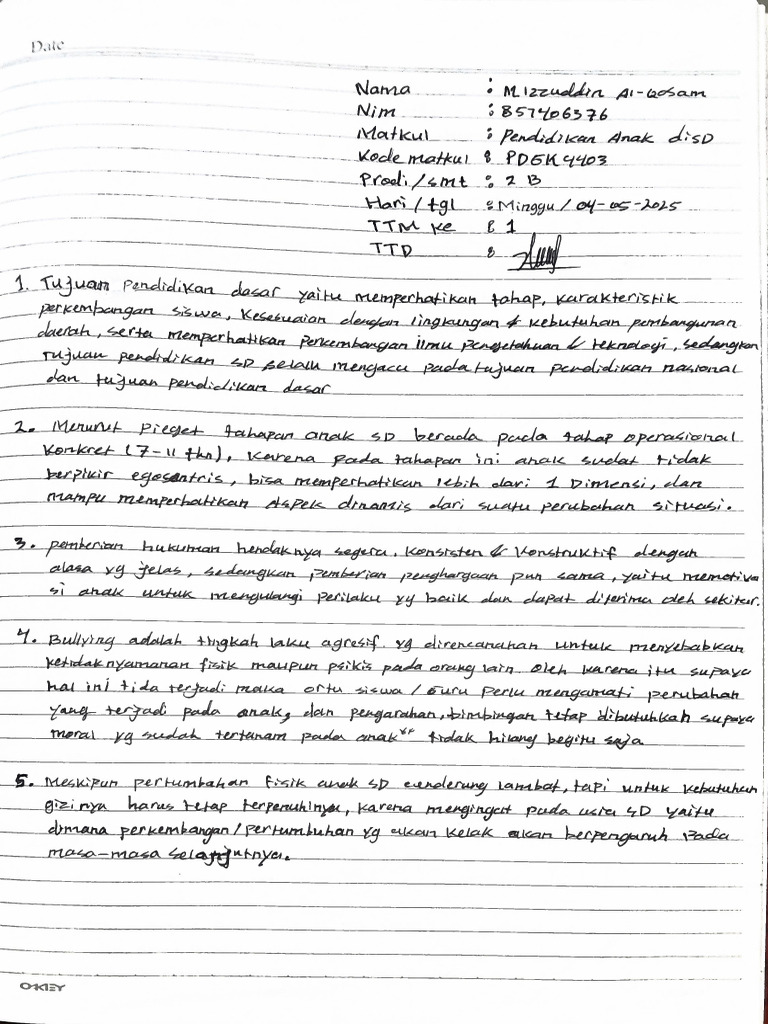 Date
Nama : Mizzuddin Al-Qosam
Nim : 857406376
Matkul : Pendidikan Anak disD
Kode matkul : PDGK4403
Prodi/smt : 2 B
Hari/tgl : Minggu/04-05-2025
TTM Ke : 1
TTD :
1. Tujuan Pendidikan dasar yaitu memperhatikan tahap, karakteristik
perkembangan siswa, kesesuaian dengan lingkungan & kebutuhan pembangunan
daerah, serta memperhatikan perkembangan ilmu pengetahuan & teknologi, sedangkan
tujuan pendidikan SD selalu mengacu pada tujuan pendidikan nasional
dan tujuan pendidikan dasar
2. Menurut Pieget tahapan anak SD berada pada tahap operasional
konkret (7-11 thn), karena pada tahapan ini anak sudat tidak
berpikir egosentris, bisa memperhatikan lebih dari 1 Dimensi, dan
mampu memperhatikan Aspek dinamis dari suatu perubahan situasi.
3. pemberian hukuman hendaknya segera, konsisten & konstruktif dengan
alasa yg jelas, sedangkan pemberian penghargaan pun sama, yaitu memotiva
si anak untuk mengulangi perilaku yg baik dan dapat diterima oleh sekitar.
4. Bullying adalah tingkah laku agresif yg direncanahan untuk menyebabkan
ketidaknyamanan fisik maupun psikis pada orang lain. Oleh karena itu supaya
hal ini tida terjadi maka ortu siswa/Guru perlu mengamati perubahan
yang terjadi pada anak, dan pengarahan, bimbingan tetap dibutuhkah supaya
moral yg sudah tertanam pada anak" tidak hilang begitu saja
5. Meskipun pertumbahan fisik anak SD cenderung lambat, tapi untuk kebutuhan
gizinya harus tetap terpenuhinya, karena mengingat pada usia SD yaitu
dimana perkembangan/pertumbuhan yg akan kelak akan berpengaruh pada
masa-masa selanjutnya.
OKEY